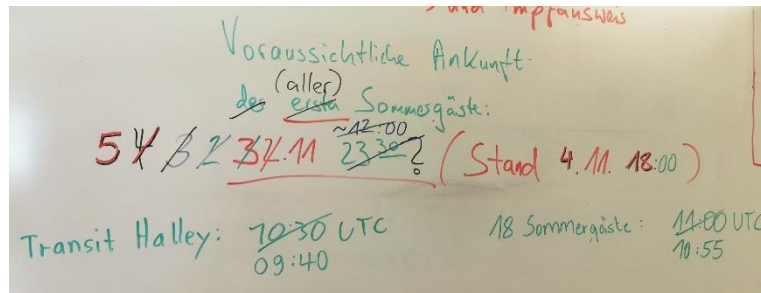 und Impfausweis
Voraussichtliche Ankunft
(aller)
der ersten Sommergäste:
~12:00
5 4 3 2 3 4.11 23 30 ? (Stand 4.11. 18:00)
Transit Halley: 10:30 UTC 18 Sommergäste: 11:00 UTC
09:40 10:55